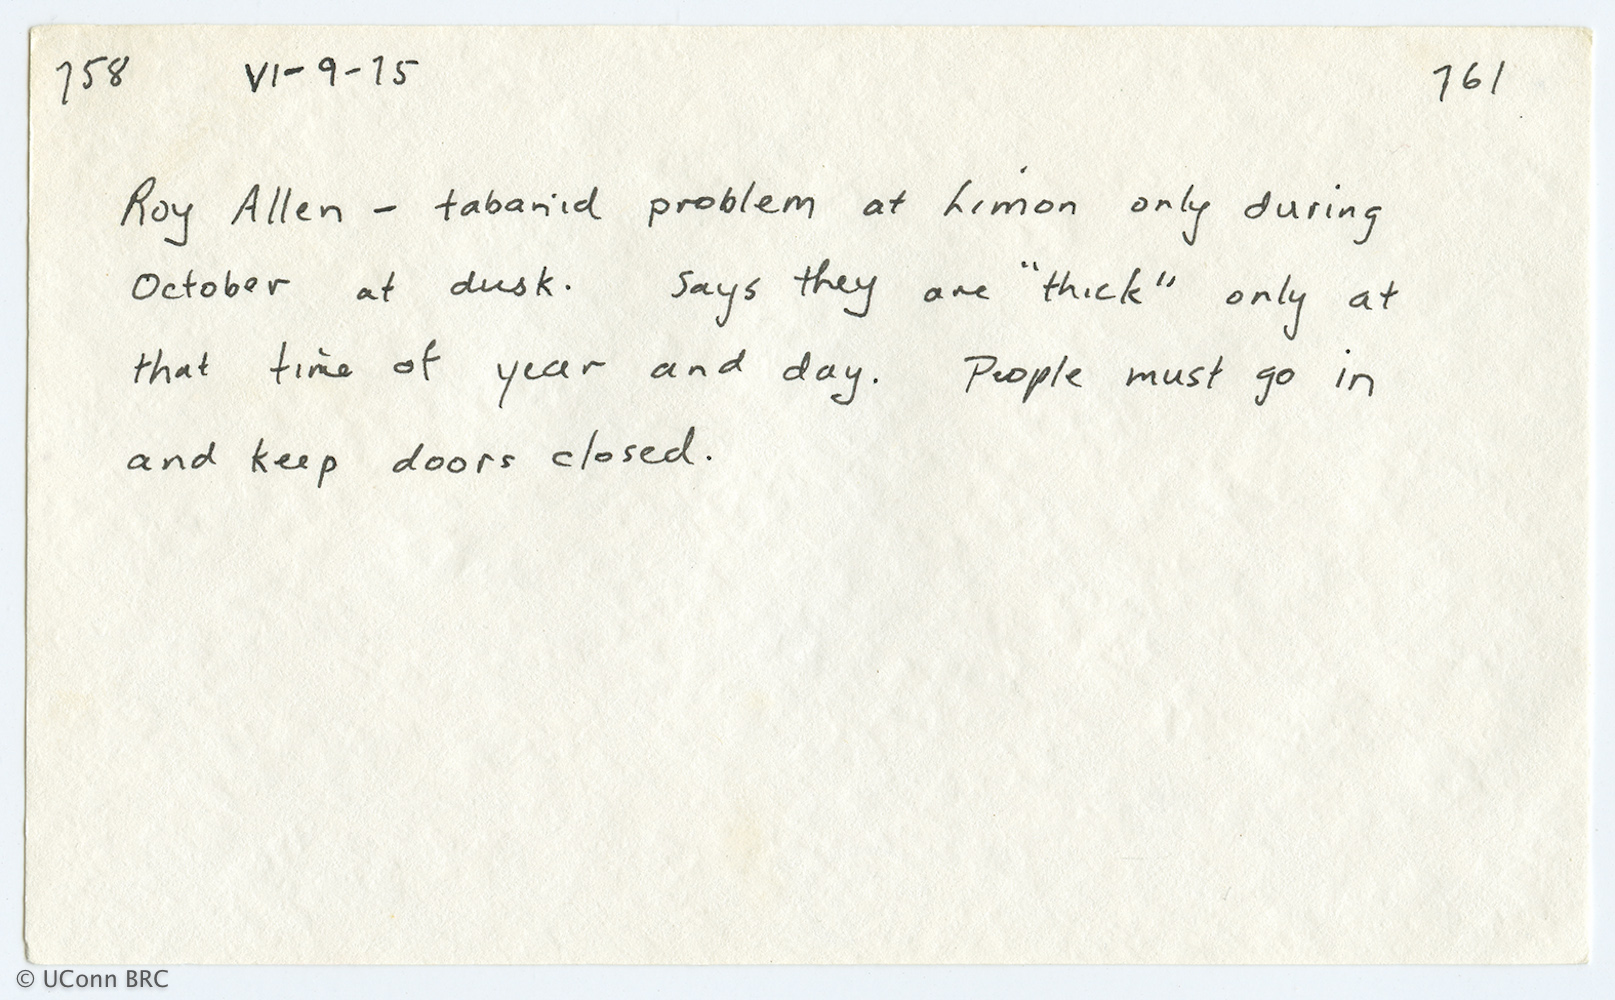 758 VI-9-75 761
Roy Allen - tabanid problem at Limon only during
October at dusk. Says they are "thick" only at
that time of year and day. People must go in
and keep doors closed.
© UConn BRC